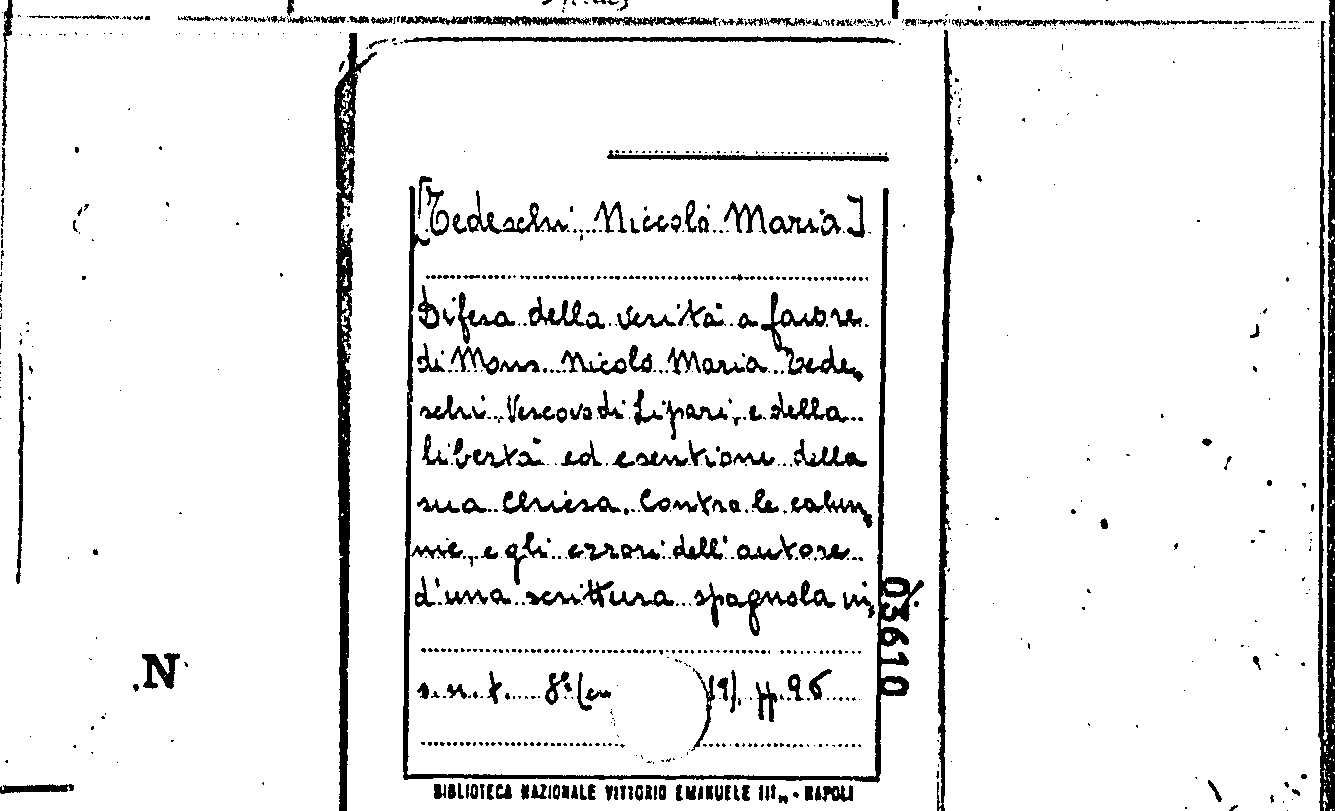 [Tedeschi, Niccolò Maria]
Difesa della verità a favore
di Mons. Nicolò Maria Tede,
schi, Vescovo di Lipari, e della
libertà ed esentione della
sua Chiesa. Contro le calun,
nie, e gli errori dell'autore
d'una scrittura spagnola in,
s.n.t. 8º (cm 19). pp. 96
03610
N
BIBLIOTECA NAZIONALE VITTORIO EMANUELE III,, - NAPOLI